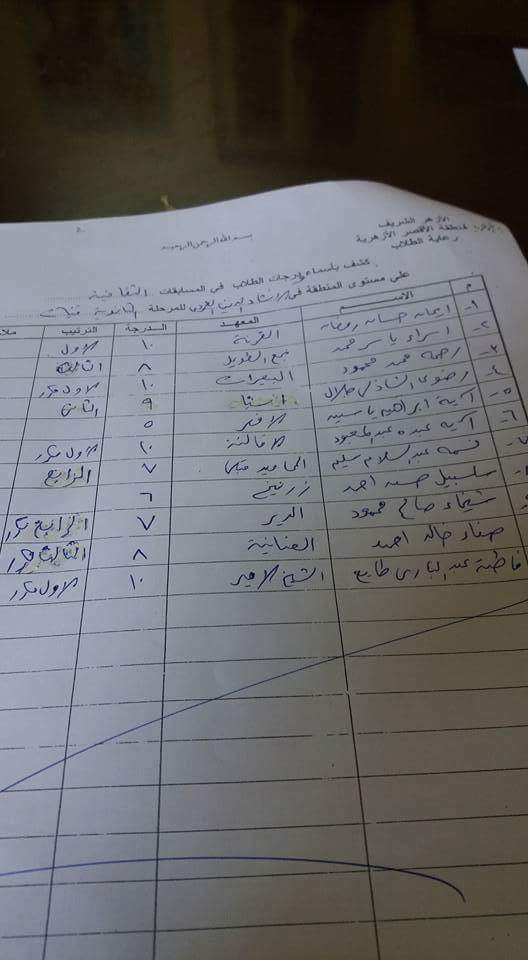 الأزهر الشريف
منطقة الأقصر الأزهرية
رعاية الطلاب
بسم الله الرحمن الرحيم
كشف بأسماء ودرجات الطلاب في المسابقات الثقافية
على مستوى المنطقة في للمرحلة الثانوية فتيات
م الاسم المعهد الدرجة الترتيب
١- ايمان حسان رمضان القرية ١٠ الاول
٢- اسراء ياسر محمد نجع الطويل ٨ الثالث
٣- رحمة محمد محمود البعيرات ١٠ الاول مكرر
٤- رضوى الشاذلى جلال ٩ الثانى
٥- آية ابراهيم ياسين ٥
٦- آية عبده عبد المعود ١٠ الاول مكرر
قسمة عبد السلام سليم المحاميد قبلى ٧ الرابع
سلسبيل حسن احمد زرنيخ ٦
شيماء صالح محمود الدير ٧ الرابع مكرر
صفاء خالد احمد العضايمة ٨ الثالث مكرر
فاطمة عبد البارى طايع الشيخ الامير ١٠ الاول مكرر